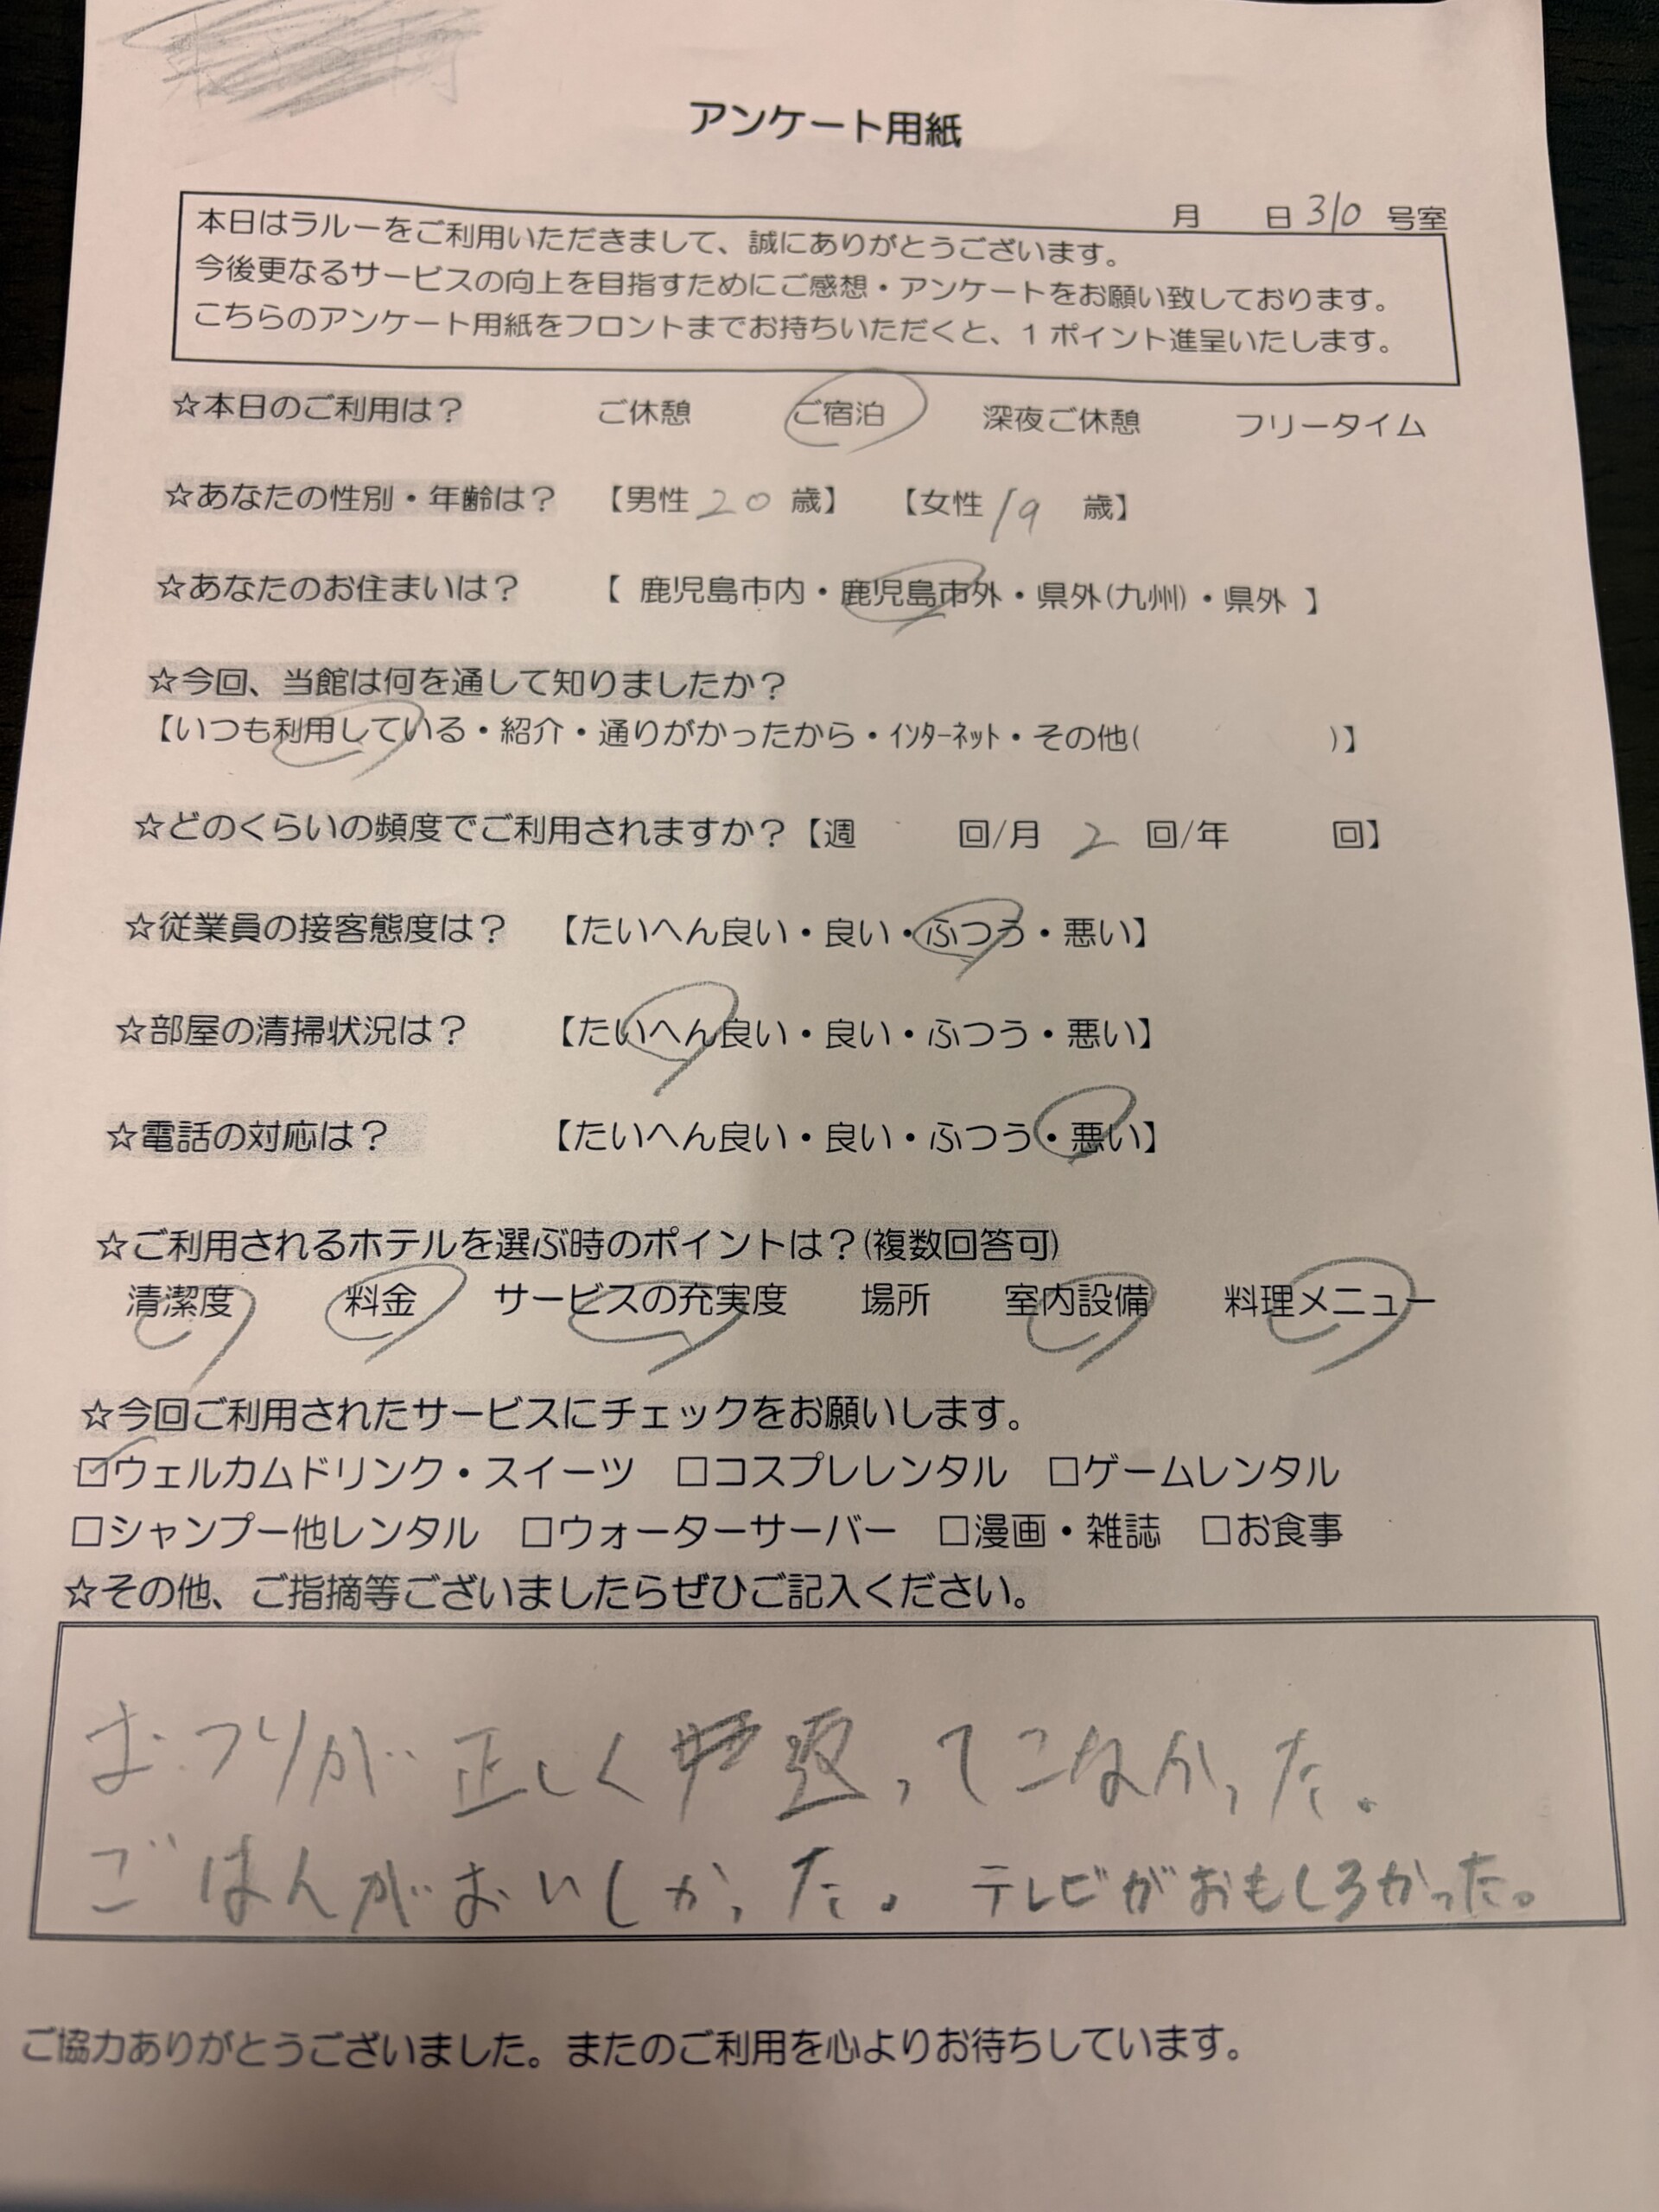 アンケート用紙
月　　日 310 号室
本日はラルーをご利用いただきまして、誠にありがとうございます。
今後更なるサービスの向上を目指すためにご感想・アンケートをお願い致しております。
こちらのアンケート用紙をフロントまでお持ちいただくと、1 ポイント進呈いたします。
☆本日のご利用は？　ご休憩　ご宿泊　深夜ご休憩　フリータイム
☆あなたの性別・年齢は？　【男性 20 歳】　【女性 19 歳】
☆あなたのお住まいは？　【 鹿児島市内・鹿児島市外・県外(九州)・県外 】
☆今回、当館は何を通して知りましたか？
【いつも利用している・紹介・通りがかったから・ｲﾝﾀｰﾈｯﾄ・その他(　　　　　)】
☆どのくらいの頻度でご利用されますか？【週　　回/月 2 回/年　　回】
☆従業員の接客態度は？　【たいへん良い・良い・ふつう・悪い】
☆部屋の清掃状況は？　【たいへん良い・良い・ふつう・悪い】
☆電話の対応は？　【たいへん良い・良い・ふつう・悪い】
☆ご利用されるホテルを選ぶ時のポイントは？(複数回答可)
清潔度　料金　サービスの充実度　場所　室内設備　料理メニュー
☆今回ご利用されたサービスにチェックをお願いします。
☑ウェルカムドリンク・スイーツ　□コスプレレンタル　□ゲームレンタル
□シャンプー他レンタル　□ウォーターサーバー　□漫画・雑誌　□お食事
☆その他、ご指摘等ございましたらぜひご記入ください。
おつりが正しく返ってこなかった。
ごはんがおいしかった。テレビがおもしろかった。
ご協力ありがとうございました。またのご利用を心よりお待ちしています。